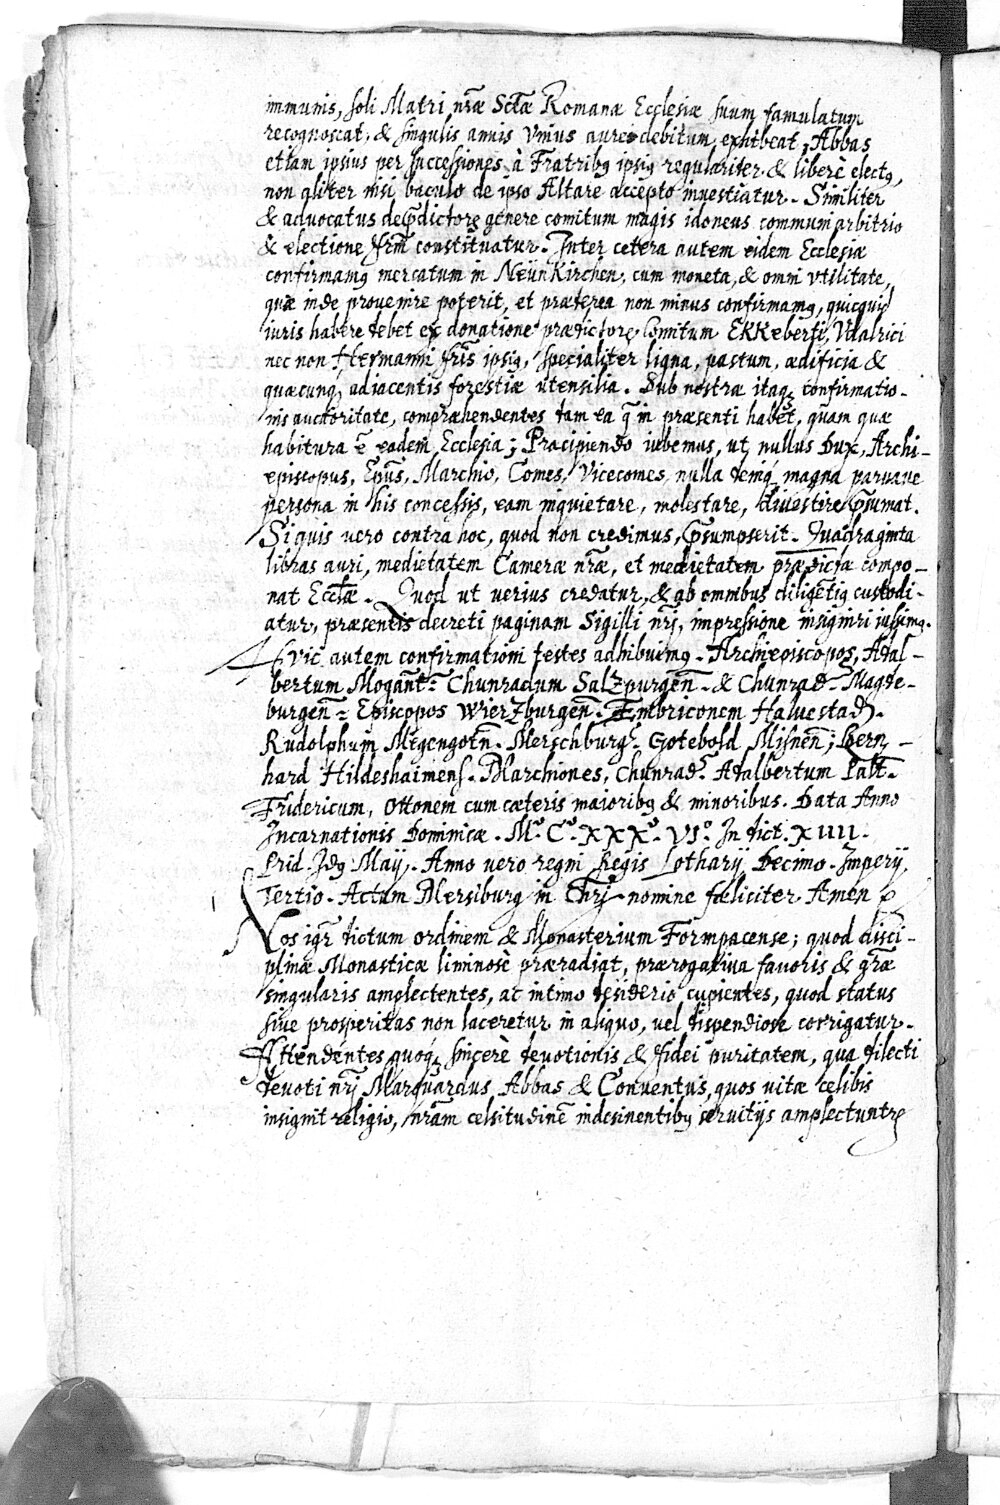 immunis, soli Matri nr̃æ Sctæ Romanæ Ecclesiæ suum famulatum
recognoscat, & singulis annis vnius aurei debitum exhibeat, Abbas
etiam ipsius per successiones à Fratribꝰ ipsiꝰ regulariter & liberè electꝰ,
non aliter nisi baculo de ipso Altare accepto inuestiatur. Similiter
& advocatus de p̃dictorꝭ genere comitum magis idoneus communi arbitrio
& electione fr̃m constituatur. Inter cetera autem eidem Ecclesiæ
confirmamꝰ mercatum in Neünkirchen, cum moneta, & omni vtilitate,
quæ inde prouenire poterit, et præterea non minus confirmamꝰ, quicquid
iuris habere debet ex donatione prædictorꝭ Comitum Ekkeberti, Vdalrici
nec non Heymanni fr̃is ipsiꝰ, specialiter ligna, pastum, ædificia &
quæcunqꝫ adiacentis forestiæ utensilia. Sub nostræ itaqꝫ confirmatio-
nis auctoritate, compræhendentes tam ea q̃ in præsenti habet, quam quæ
habitura ẽ eadem Ecclesia; Præcipiendo iubemus, ut nullus Dux, Archi-
episcopus, Ep̃us, Marchio, Comes, Vicecomes, nulla deniqꝫ magna paruaue
persona in his concessis, eam inquietare, molestare, divestire p̃sumat.
Siquis vero contra hoc, quod non credimus, p̃sumpserit. Quadraginta
libras auri, medietatem Cameræ nr̃æ, et medietatem prædictæ compo-
nat Eccl̃æ. Quod ut verius credatur, & ab omnibus diligẽtiꝰ custodi-
atur, præsentis decreti paginam Sigilli nr̃j, impressione insigniri iussimꝰ.
Huic autem confirmationi testes adhibuimꝰ. Archiepiscopos, Adal-
bertum Mogãnt. Chunradum Salzpurgeñ. & Chunrad. Magde-
burgeñ. Episcopos Wierzburgeñ. Embriconem Halvestad.
Rudolphum Mẽgengotñ. Merschburg. Gotebold Misneñ; Bern-
hard Hildeshaimens. Marchiones, Chunrad. Adalbertum Palt.
Fridericum, Ottonem cum cæteris maioribꝰ & minoribus. Data Anno
Incarnationis Dominicæ. Mº. Cº. XXXº. VIº. Indict. XIIII.
Prid. Idꝰ Maij. Anno vero regni Regis Lotharij Decimo. Imperij
Tertio. Actum Mersiburg in Chrj̃ nomine fœliciter Amen
Nos igr̃ dictum ordinem & Monasterium Formpacense; quod disci-
plinæ Monasticæ liminosè præradiat, prærogatiua favoris & gr̃æ
singularis amplectentes, ac intimo desiderio cupientes, quod status
siue prosperitas non laceretur in aliquo, vel dispendiose corrigatur.
Attendentes quoqꝫ sincerè deuotionis & fidei puritatem, qua dilecti
deuoti nr̃j Marquardus Abbas & Conventus, quos vitæ celibis
insignit religio, nr̃am celsitudinẽ indesinentibꝰ servitijs amplectuntꝛ